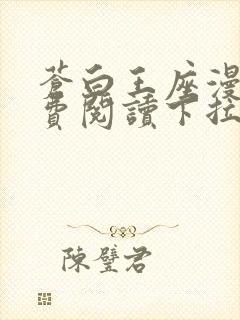 蒼白王座漫
費閱讀下拉
陳璧君